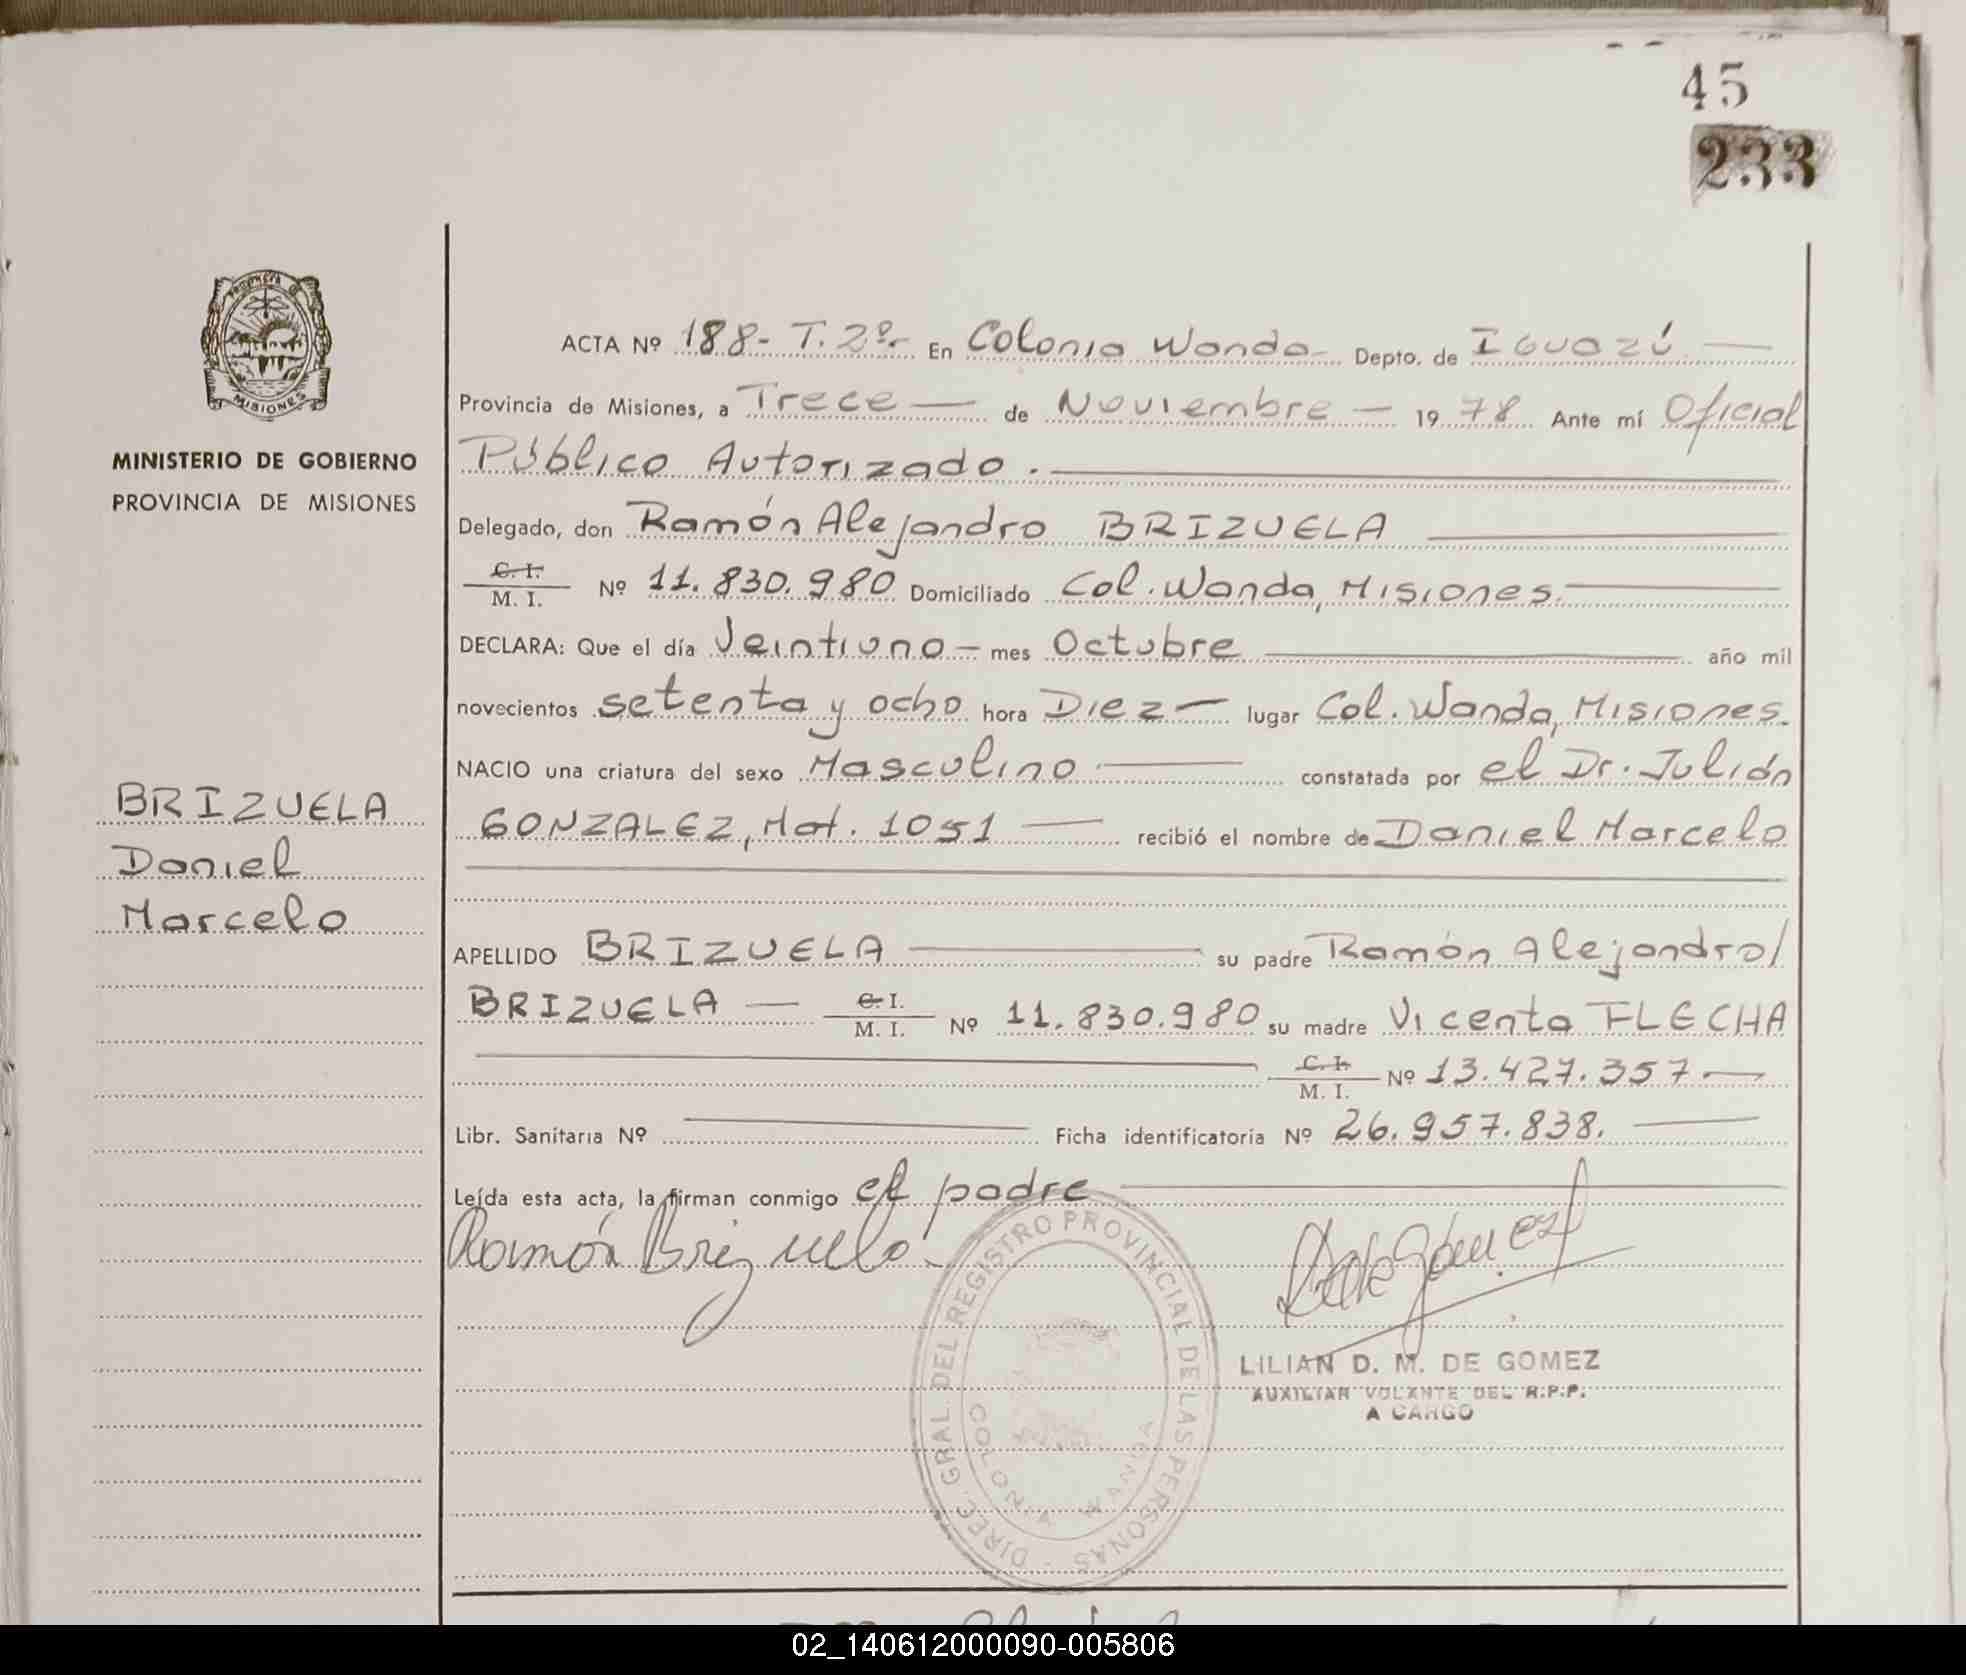 45
233
MISIONES
MINISTERIO DE GOBIERNO
PROVINCIA DE MISIONES
BRIZUELA
Daniel
Marcelo
ACTA Nº 188- T. 2º- En Colonia Wanda Depto. de Iguazú
Provincia de Misiones, a Trece de Noviembre 1978 Ante mí Oficial
Público Autorizado.
Delegado, don Ramón Alejandro BRIZUELA
C. I.
M. I. Nº 11.830.980 Domiciliado Col. Wanda, Misiones.
DECLARA: Que el día Veintiuno mes Octubre año mil
novecientos setenta y ocho hora Diez lugar Col. Wanda, Misiones.
NACIO una criatura del sexo Masculino constatada por el Dr. Julián
GONZALEZ, Mat. 1051 recibió el nombre de Daniel Marcelo
APELLIDO BRIZUELA su padre Ramón Alejandro/
BRIZUELA C. I.
M. I. Nº 11.830.980 su madre Vicenta FLECHA
C. I.
M. I. Nº 13.427.357.
Libr. Sanitaria Nº Ficha identificatoria Nº 26.957.838.
Leída esta acta, la firman conmigo el padre
Ramón Brizuela
DIREC. GRAL. DEL REGISTRO PROVINCIAL DE LAS PERSONAS
COLONIA WANDA
LILIAN D. M. DE GOMEZ
AUXILIAR VOLANTE DEL R.P.P.
A CARGO
02_140612000090-005806